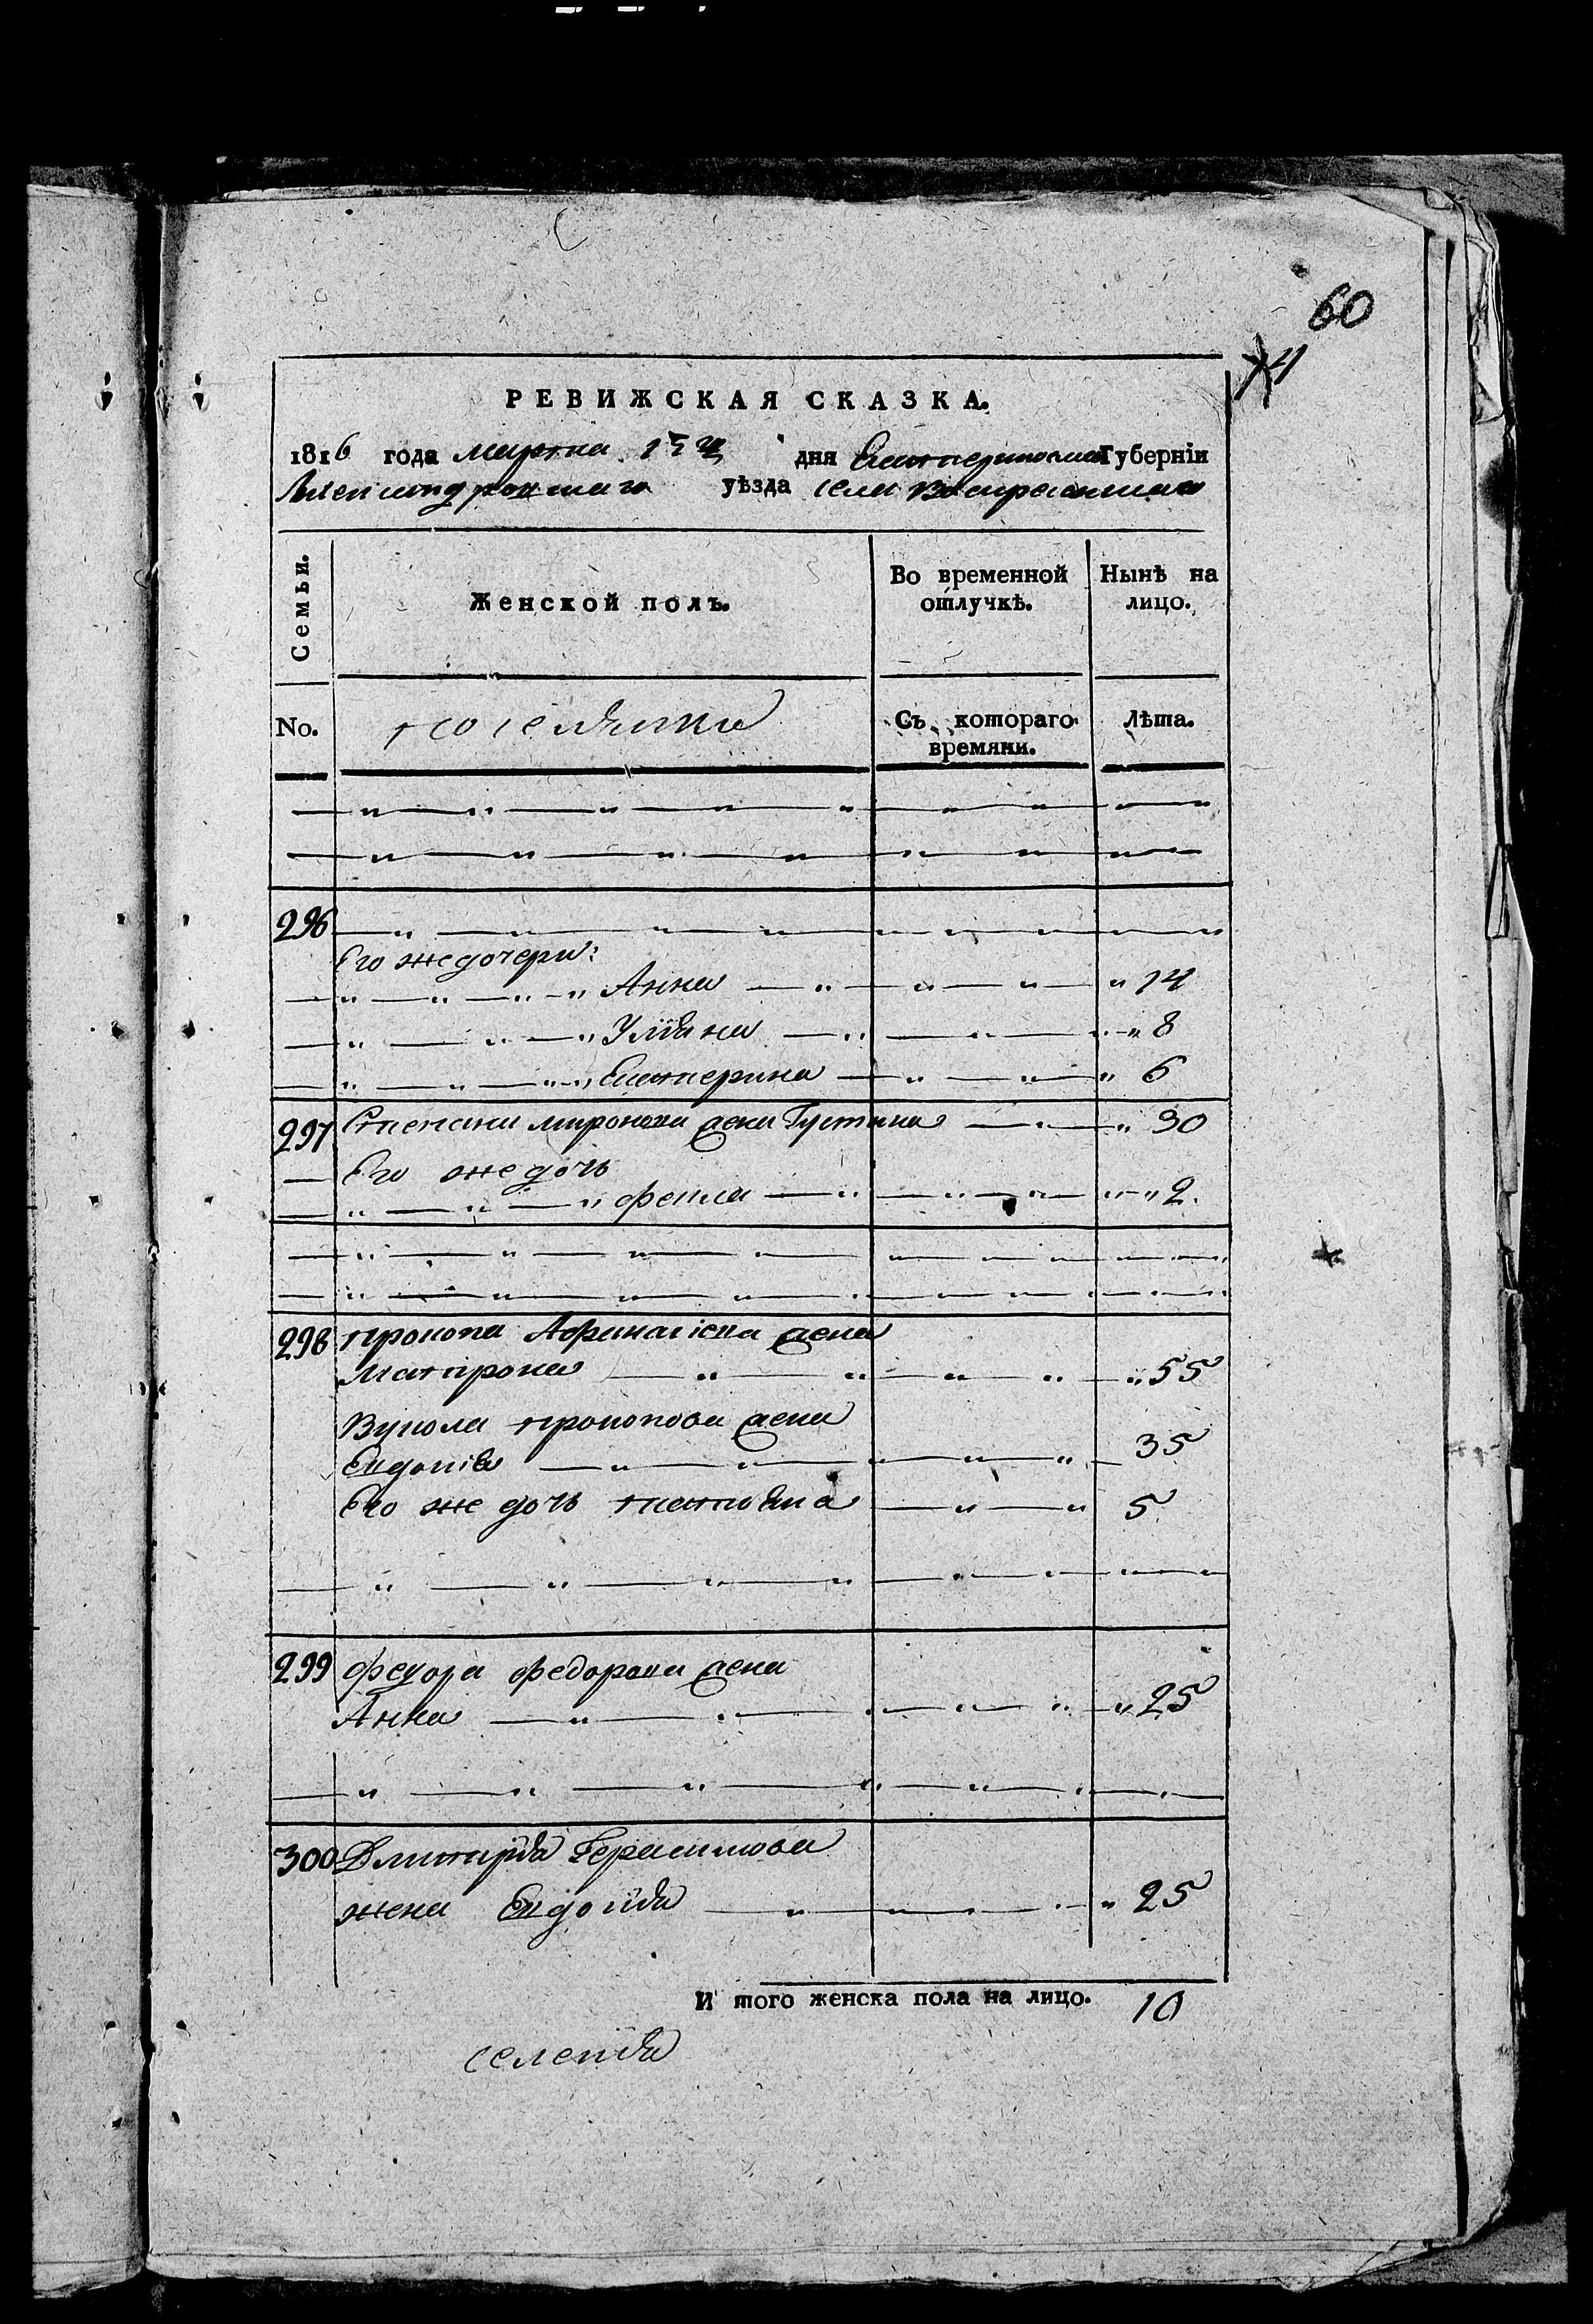 60
74
РЕВИЖСКАЯ СКАЗКА.
1816 года марта 15 дня Екатеринослав Губерніи
Александровскаго уѣзда села Воскресенскаго
Семьи. Женской полъ. Во временной отлучкѣ. Нынѣ на лицо.
No. поселяне Съ котораго времяни. Лѣта.
296
Его же дочери:
Анна 14
Уліяна 8
Екатерина 6
297 Степана миронова жена Густина 30
Его же дочь
фекла 2.
298 прокопа Афанасіева жена
Матрона 55
Вукола прокопова жена
Евдокія 35
Его же дочь татіяна 5
299 федора федорова жена
Анна 25
300 Дмитрія Герасимова
жена Евдокія 25
И того женска пола на лицо. 10
селенія